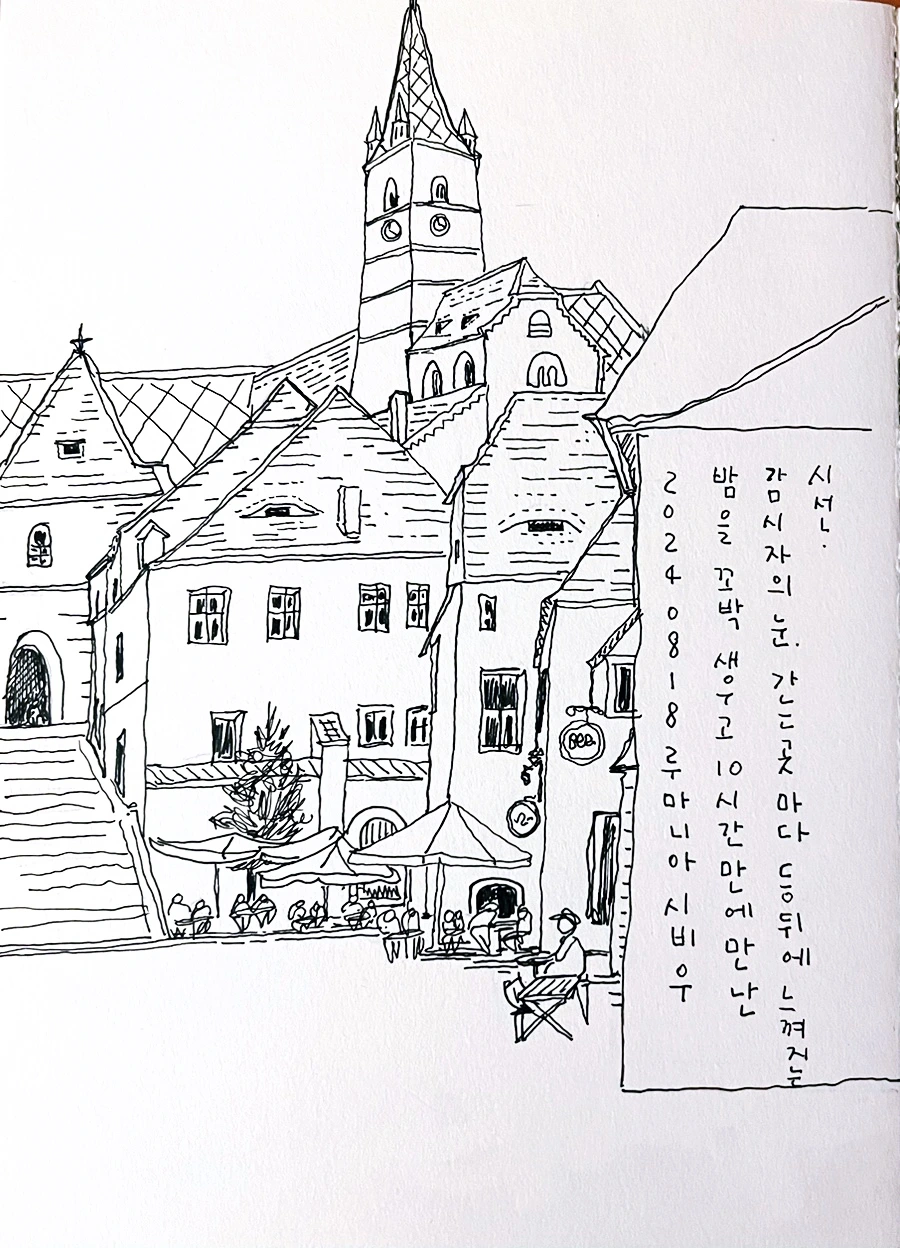 20240818루마니아시비우
밤을 꼬박 새우고 10시간만에만난
감시자의 눈. 가는곳마다 등뒤에 느껴지는
시선.